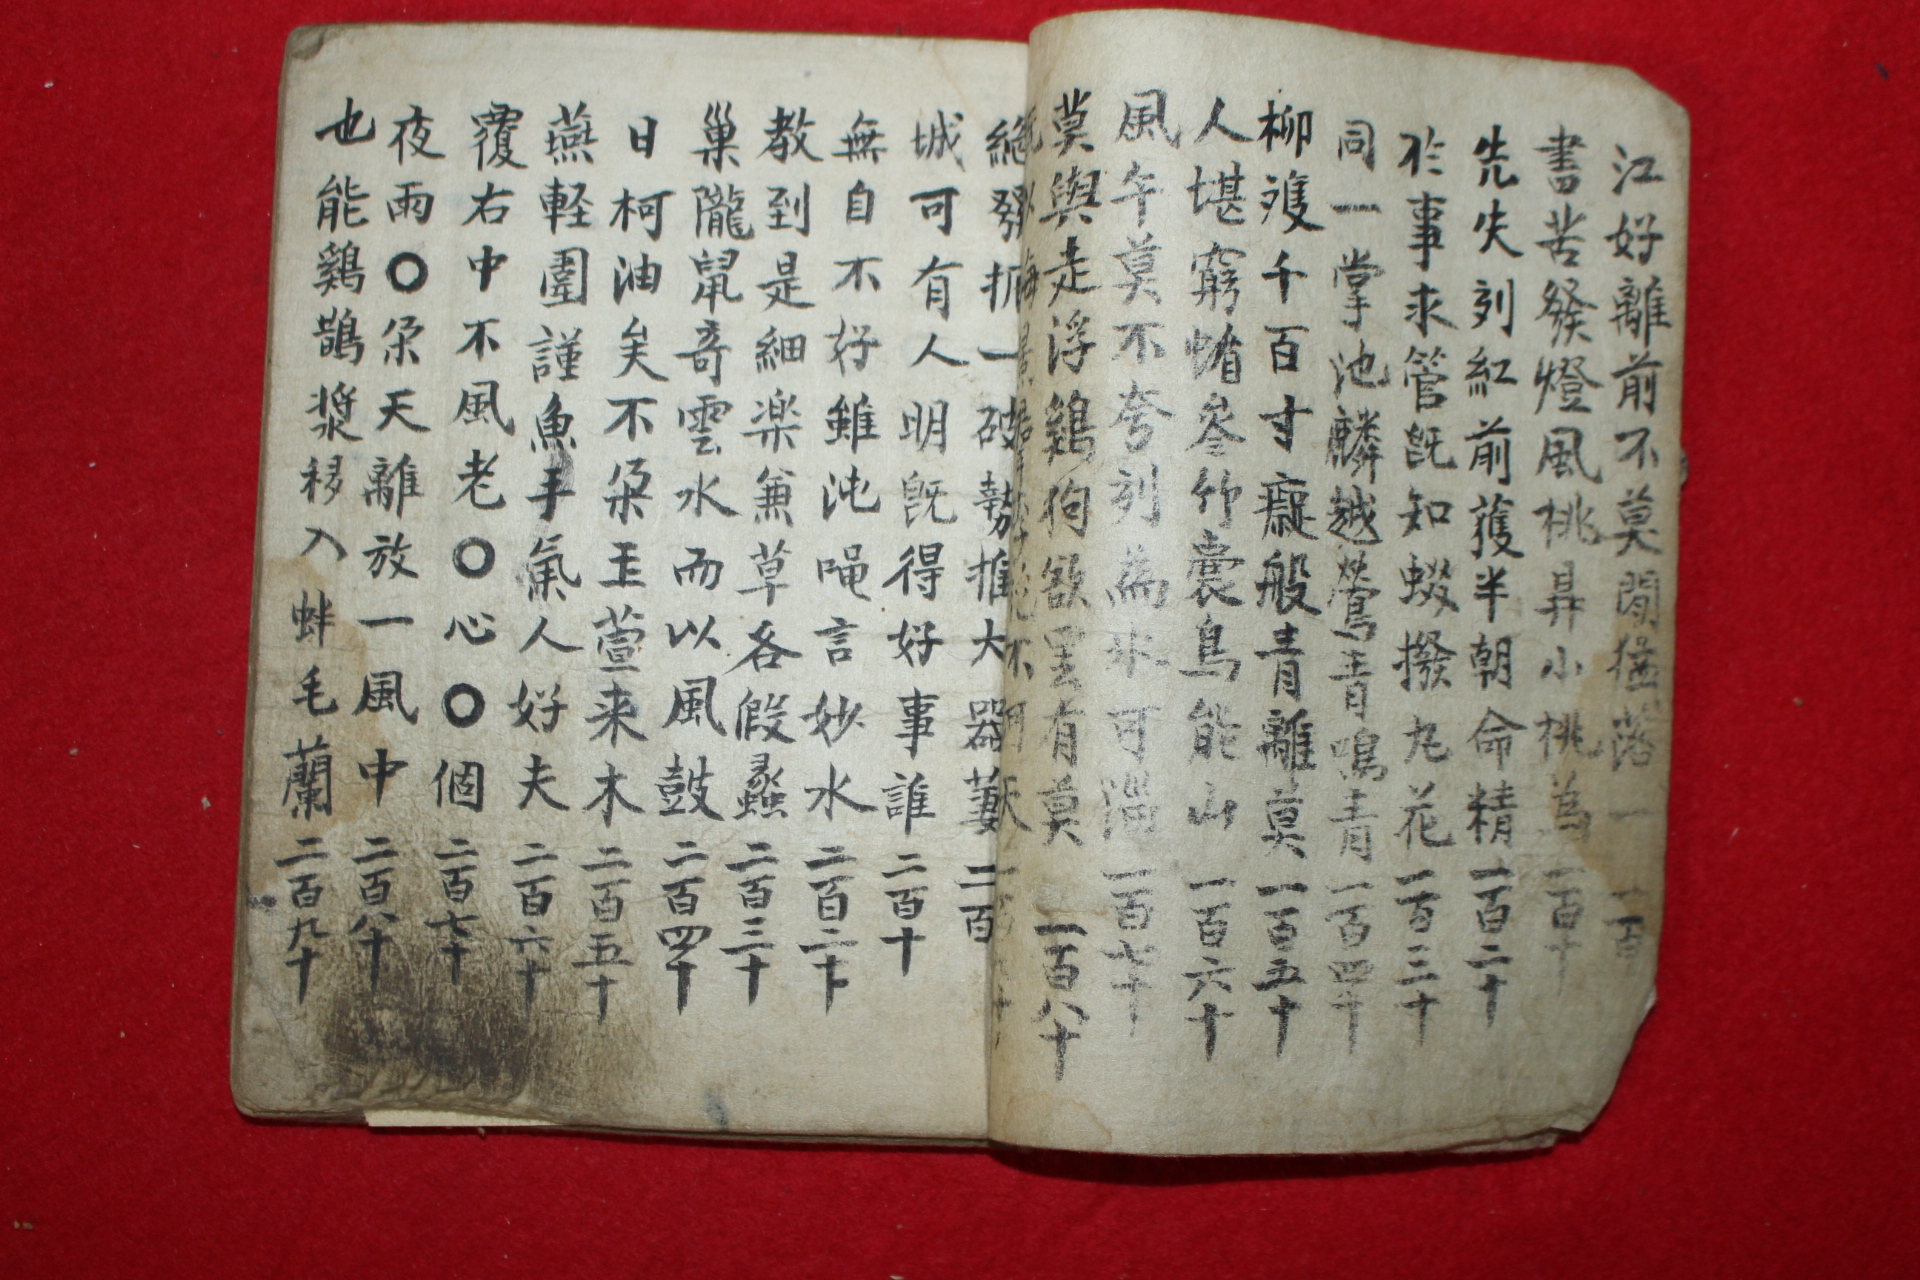 江好離前不莫聞猶落一 一百
書苦發燈風桃昇小桃為 一百十
先失刻紅前獲半朝命精 一百二十
於事求管既知蝃撥九花 一百三十
同一掌池麟越鶯青鳴青 一百四十
柳獲千百寸癡般青離莫 一百五十
人堪窮惰參竹囊鳥能山 一百六十
風午莫不夸刻為水可淄 一百七十
莫與走浮鷄狗欲里有莫 一百八十
絶發扼一破勢推大器萋 二百
城可有人明既得好事誰 二百十
無自不好雖沌啞言妙水 二百二十
教到是細楽兼草各假蟊 二百三十
巢隴鼠奇雲水而以風鼓 二百四十
日柯油矣不朶玉萱来木 二百五十
燕軽圍謹魚手氣人好夫 二百六十
覆右中不風老〇心〇個 二百七十
夜雨〇朶天離放一風中 二百八十
也能鷄鵲漿移入蚌毛蘭 二百九十